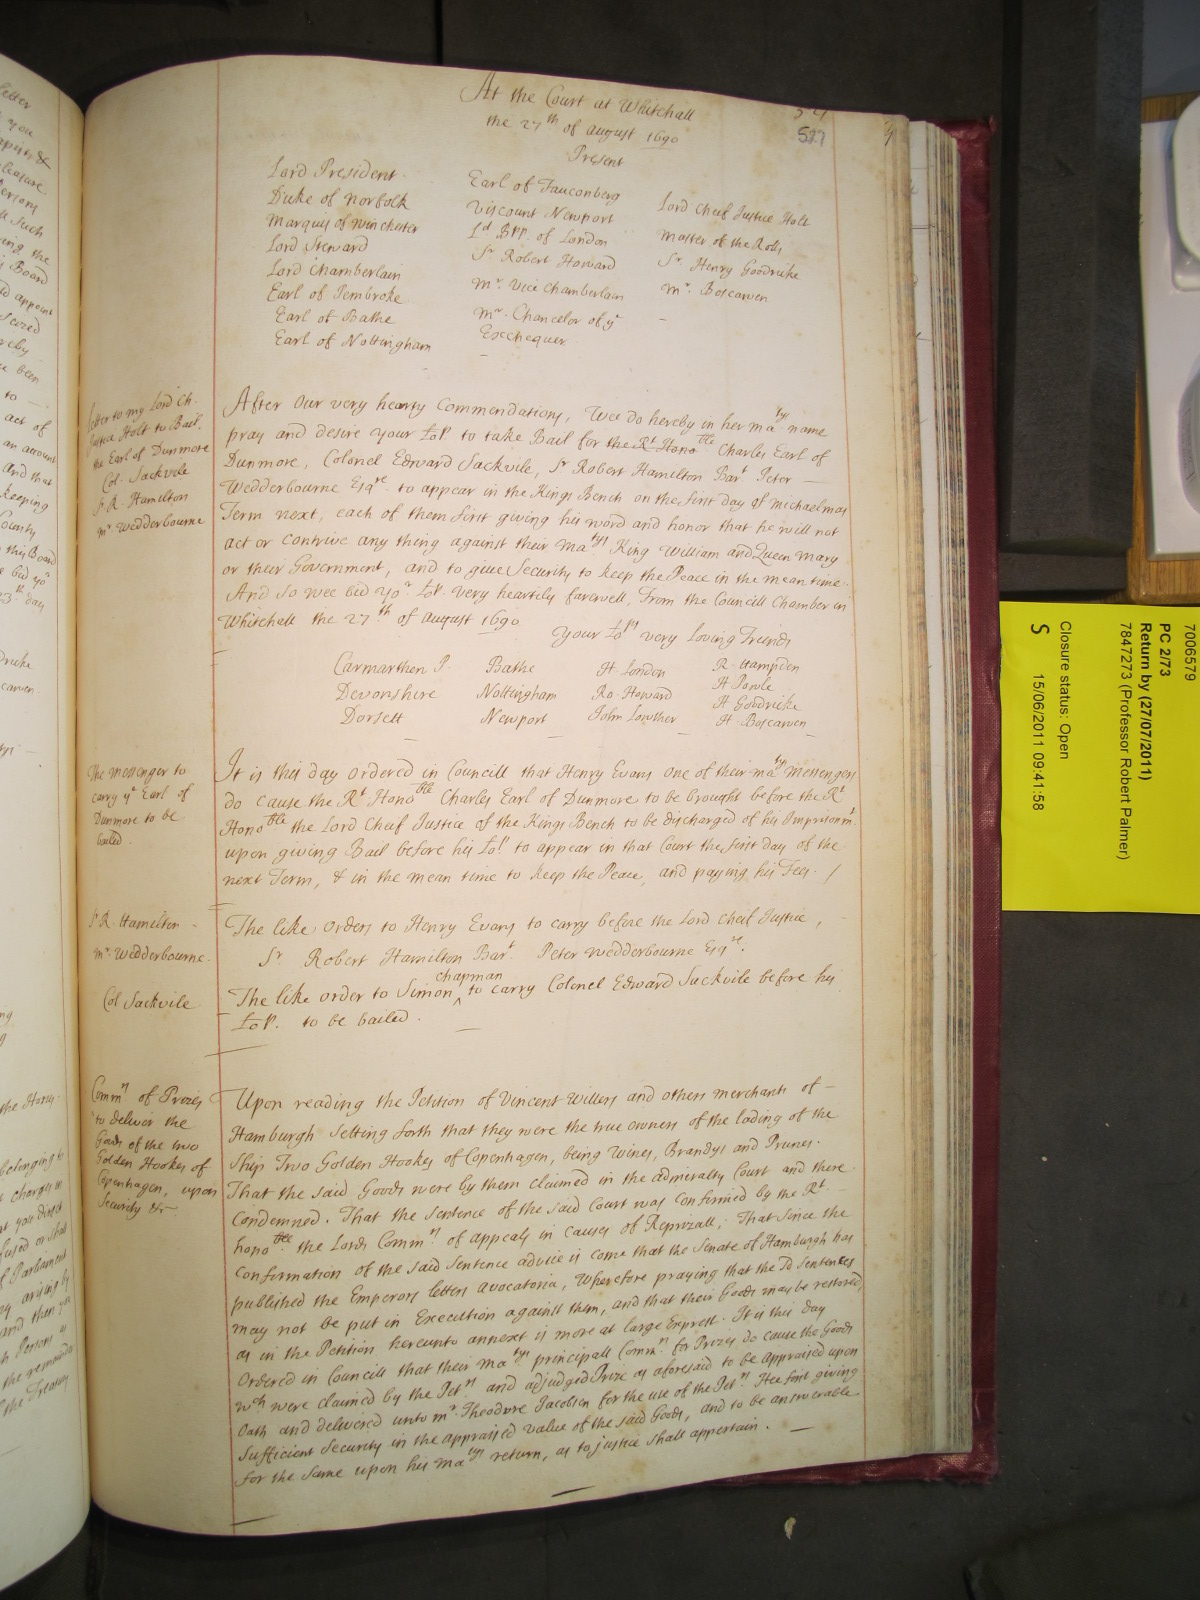 At the Court at Whitehall
the 27th of August 1690
527
Present
Lord President
Duke of Norfolk
Marquis of Winchester
Lord Steward
Lord Chamberlain
Earl of Pembroke
Earl of Bathe
Earl of Nottingham
Earl of Fauconberg
Viscount Newport
Ld Bpp. of London
Sr. Robert Howard
Mr. Vice Chamberlain
Mr. Chancelor of ye
Exchequer
Lord Cheif Justice Holt
Master of the Rolls
Sr. Henry Goodricke
Mr. Boscawen
Letter to my Lord Ch.
Justice Holt to Bail
the Earl of Dunmore
Col. Sackvile
Sr. R. Hamilton
Mr. Wedderbourne
After Our very hearty Commendations, Wee do hereby in her Matys name
pray and desire your Lop. to take Bail for the Rt Honoble Charles Earl of
Dunmore, Colonel Edward Sackvile, Sr Robert Hamilton Bart Peter
Wedderbourne Esqre. to appear in the Kings Bench on the first day of Michaelmas
Term next, each of them first giving his word and honor that he will not
act or contrive any thing against their Matys King William and Queen Mary
or their Government, and to give Security to keep the Peace in the mean time.
And so wee bid yor. Lop. very heartily farewell, From the Councill Chamber in
Whitehall the 27th of August 1690
Your Lops very Loving Freinds
Carmarthen P.
Devonshire
Dorsett
Bathe
Nottingham
Newport
H. London
Ro. Howard
John Lowther
R. Hampden
H Powle
H Goodricke
H. Boscawen
The Messenger to
carry ye Earl of
Dunmore to be
bailed.
It is this day Ordered in Councill that Henry Evans one of their Matys Messengers
do cause the Rt Honoble Charles Earl of Dunmore to be brought before the Rt
Honoble the Lord Cheif Justice of the Kings Bench to be discharged of his Imprisonmt.
upon giving Bail before his Lop. to appear in that Court the first day of the
next Term, & in the mean time to keep the Peace, and paying his Fees.
Sr R. Hamilton
Mr. Wedderbourne.
The like Orders to Henry Evans to carry before the Lord Cheif Justice,
Sr Robert Hamilton Bart. Peter Wedderbourne Esqre.
Col Sackvile
chapman
The like order to Simon ^ to carry Colonel Edward Sackvile before his
Lop. to be bailed.
Commrs of Prizes
to deliver the
Goods of the two
Golden Hookes of
Copenhagen, upon
Security &c
Upon reading the Petition of Vincent Willers and others Merchants of
Hamburgh setting forth that they were the true owners of the lading of the
Ship Two Golden Hookes of Copenhagen, being Wines, Brandys and Prunes.
That the said Goods were by them claimed in the Admiralty Court and there
Condemned. That the sentence of the said Court was Confirmed by the Rt.
honoble the Lords Commrs of appeals in causes of Reprizall; That since the
Confirmation of the said Sentence advice is come that the Senate of Hamburgh has
published the Emperors letters Avocatoria, Wherefore praying that the sd Sentences
may not be put in Execution against them, and that their Goods may be restored,
as in the Petition hereunto annext is more at large Exprest. It is this day
Ordered in Councill that their Matys principall Commrs for Prizes do cause the Goods
wch were claimed by the Petrs and adjudged Prize as aforesaid to be Appraised upon
Oath and delivered unto Mr. Theodore Jacobsen for the use of the Petrs. Hee first giving
sufficient Security in the appraised value of the said Goods, and to be answerable
for the same upon his Matys return, as to justice shall appertain.
7006579
PC 2/73
Return by (27/07/2011)
7847273 (Professor Robert Palmer)
Closure status: Open
S 15/06/2011 09:41:58